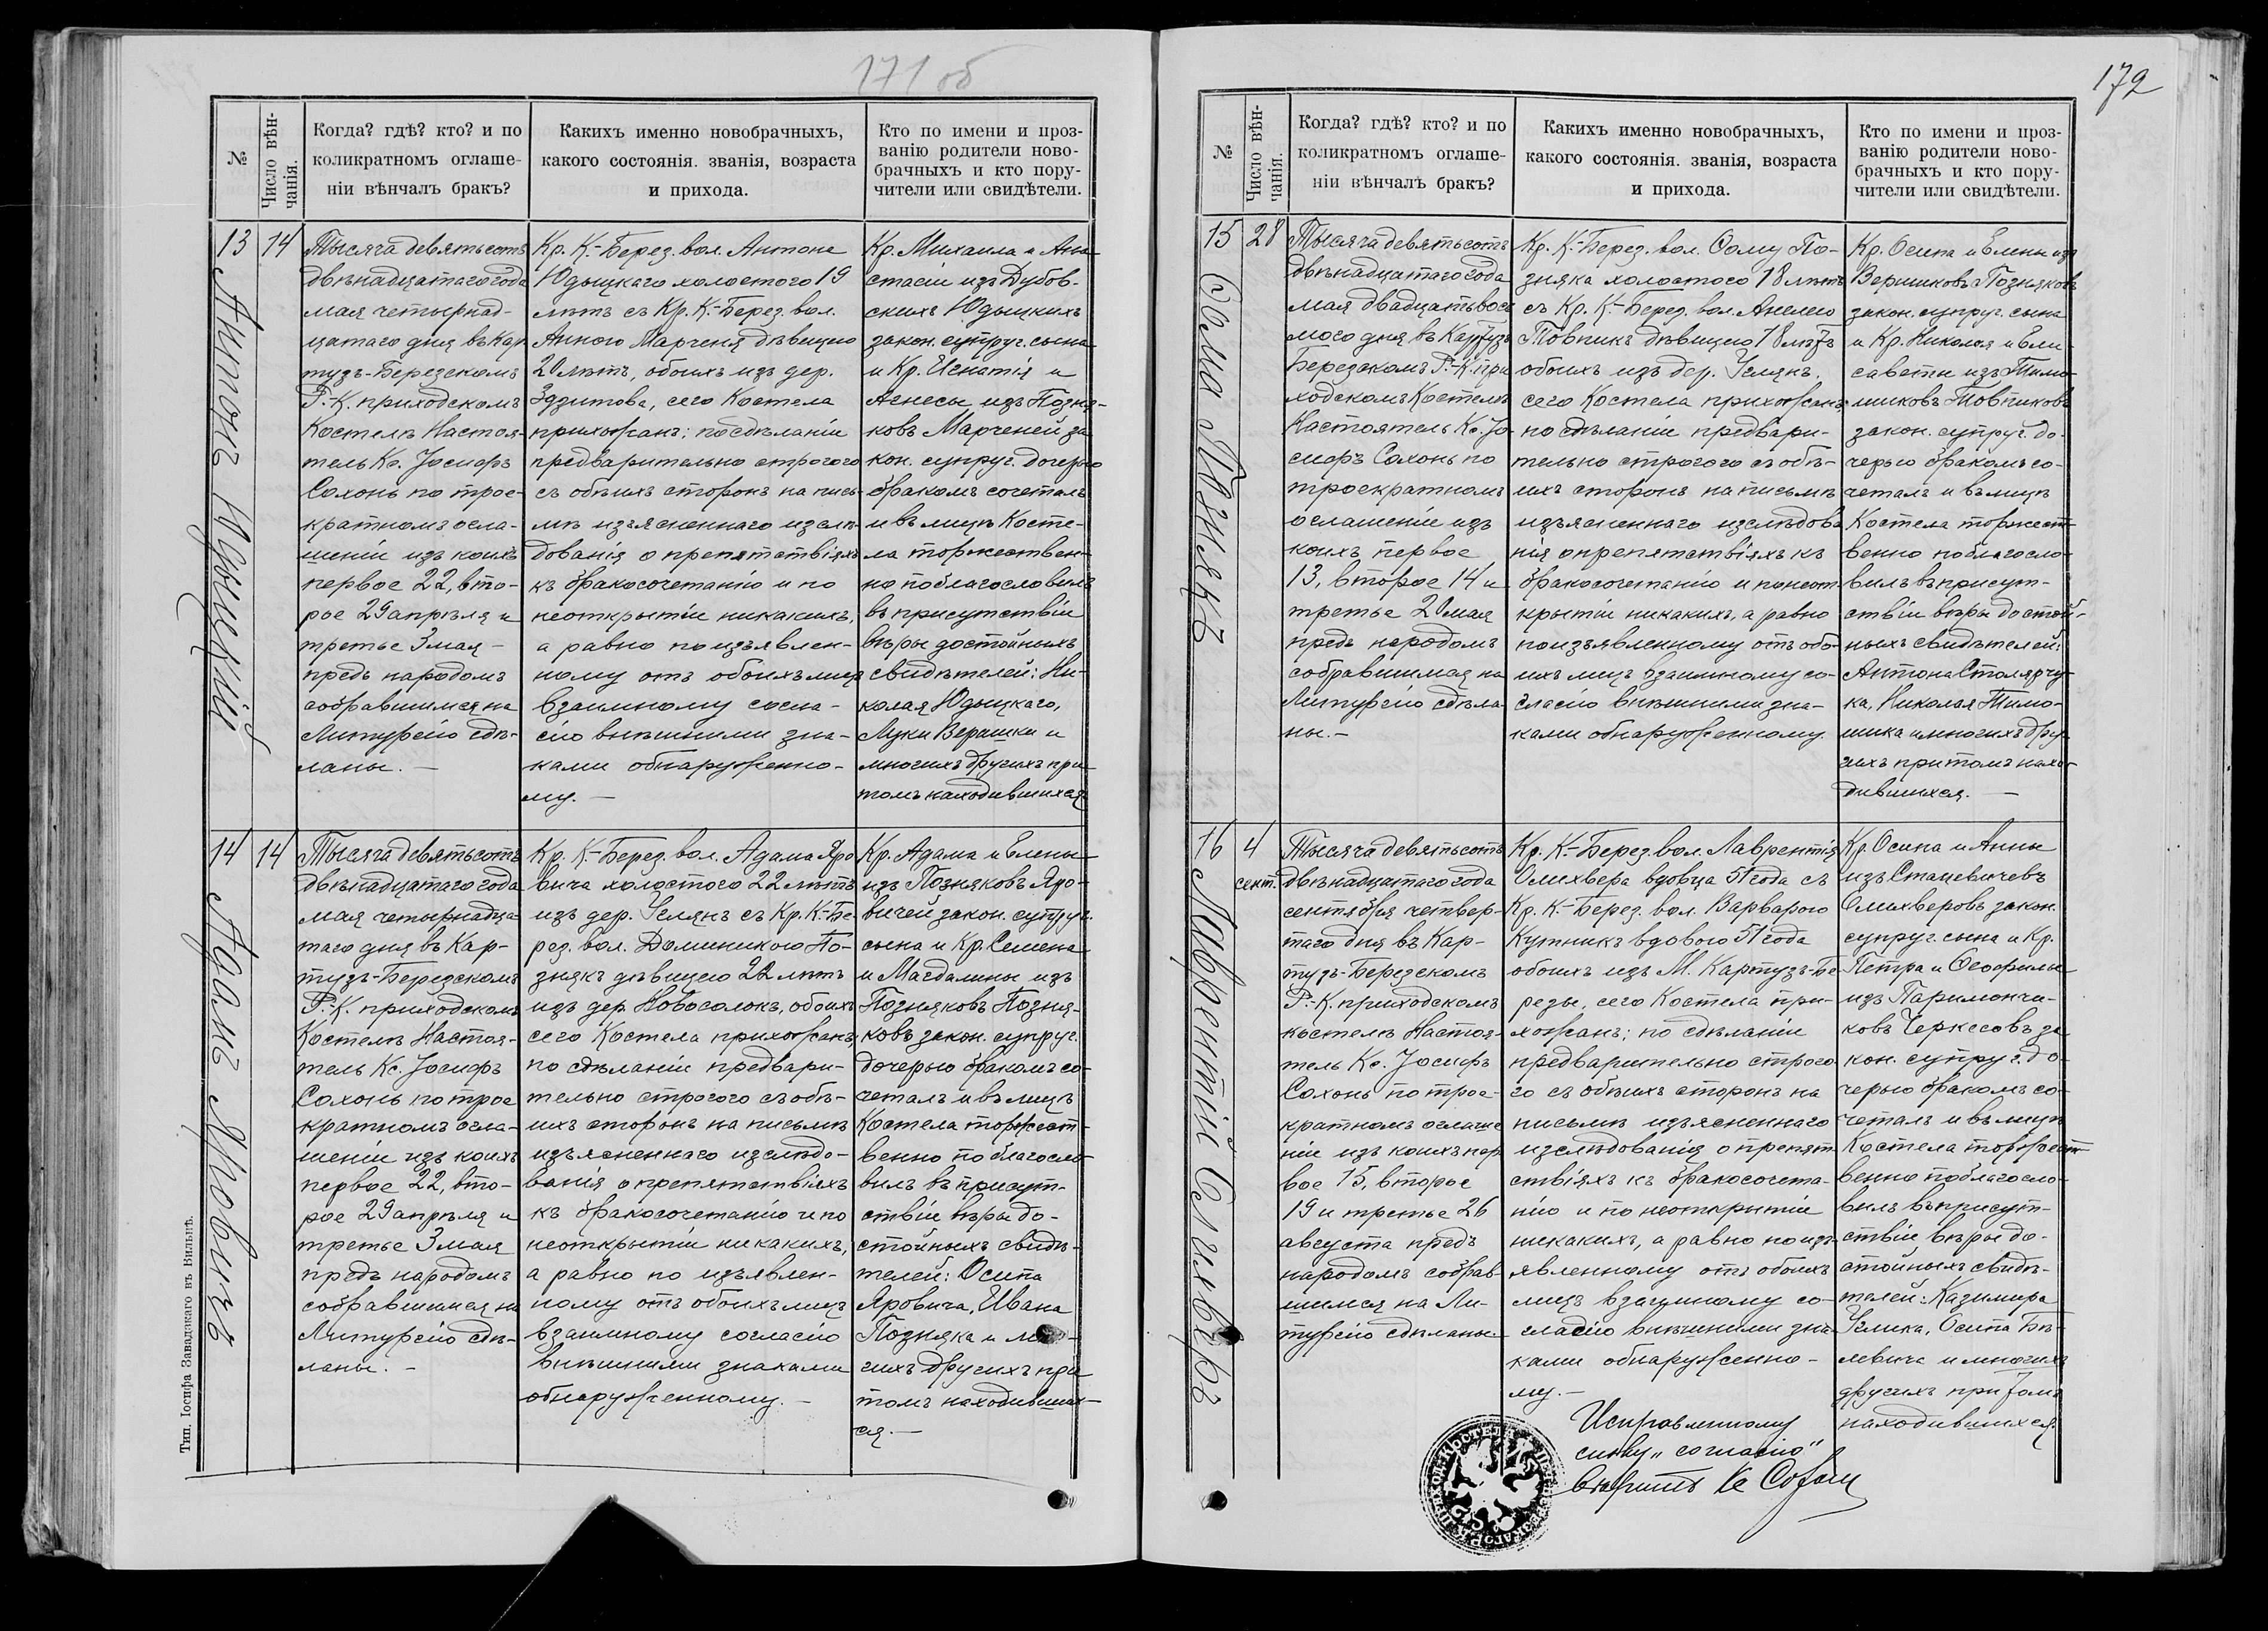 171 об
№
Число вѣн-
чанія.
Когда? гдѣ? кто? и по
коликратномъ оглаше-
ніи вѣнчалъ бракъ?
Какихъ именно новобрачныхъ,
какого состоянія. званія, возраста
и прихода.
Кто по имени и проз-
ванію родители ново-
брачныхъ и кто пору-
чители или свидѣтели.
13
14
Антонъ Юдыцкій
Тысяча девятьсотъ
двѣнадцатаго года
мая четырнад-
цатаго дня въ Кар-
тузъ-Березскомъ
Р.-К. приходскомъ
Костелѣ Настоя-
тель Кс. Іосифъ
Сохонь по трое-
кратномъ огла-
шеніи изъ коихъ
первое 22, вто-
рое 29 апрѣля и
третье 3 мая –
предъ народомъ
собравшимся на
Литургію сдѣ-
ланы. –
Кр. К.-Берез. вол. Антона
Юдыцкаго холостого 19
лѣтъ съ Кр. К.-Берез. вол.
Анною Марченя дѣвицею
20 лѣтъ, обоихъ изъ дер.
Здзитова, сего Костела
прихожанъ; по сдѣланіи
предварительно строгого
съ обѣихъ сторонъ на пись-
мѣ изъясненнаго изслѣ-
дованія о препятствіяхъ
къ бракосочетанію и по
неоткрытіи никакихъ,
а равно по изъявлен-
ному отъ обоихъ лицъ
взаимному согла-
сію внѣшними зна-
ками обнаруженно-
му. –
Кр. Михаила и Ана-
стасіи изъ Дубов-
скихъ Юдыцкихъ
закон. супруг. сына
и Кр. Игнатія и
Агнесы изъ Позня-
ковъ Марченей за-
кон. супруг. дочерью
бракомъ сочеталъ
и въ лицѣ Косте-
ла торжествен-
но поблагословилъ
въ присутствіи
вѣры достойныхъ
свидѣтелей: Ни-
колая Юдыцкаго,
Луки Верашки и
многихъ другихъ при
томъ находившихся.
14
14
Адамъ Яровичъ
Тысяча девятьсотъ
двѣнадцатаго года
мая четырнадца-
таго дня въ Кар-
тузъ-Березскомъ
Р.-К. приходскомъ
Костелѣ Настоя-
тель Кс. Іосифъ
Сохонь по трое
кратномъ огла-
шеніи изъ коихъ
первое 22, вто-
рое 29 апрѣля и
третье 3 мая
предъ народомъ
собравшимся на
Литургію сдѣ-
ланы. –
Кр. К.-Берез. вол. Адама Яро
вича холостого 22 лѣтъ
изъ дер. Углянъ съ Кр. К.-Бе-
рез. вол. Доминикою По-
знякъ дѣвицею 22 лѣтъ
изъ дер. Новосолокъ, обоихъ
сего Костела прихожанъ,
по сдѣланіи предвари-
тельно строгого съ обѣ-
ихъ сторонъ на письмѣ
изъясненнаго изслѣдо-
ванія о препятствіяхъ
къ бракосочетанію и по
неоткрытіи никакихъ,
а равно по изъявлен-
ному отъ обоихъ лицъ
взаимному согласію
внѣшними знаками
обнаруженному. –
Кр. Адама и Елены
изъ Позняковъ Яро-
вичей закон. супруг.
сына и Кр. Семена
и Магдалины изъ
Позняковъ Позня-
ковъ закон. супруг.
дочерью бракомъ со-
четалъ и въ лицѣ
Костела торжест-
венно поблагосло-
вилъ въ присут-
ствіи вѣры до-
стойныхъ свидѣ-
телей: Осипа
Яровича, Ивана
Позняка и
гихъ другихъ при
томъ находивших-
ся. –
Тип. Іосифа Завадзкаго въ Вильнѣ.
172
№
Число вѣн-
чанія.
Когда? гдѣ? кто? и по
коликратномъ оглаше-
ніи вѣнчалъ бракъ?
Какихъ именно новобрачныхъ,
какого состоянія. званія, возраста
и прихода.
Кто по имени и проз-
ванію родители ново-
брачныхъ и кто пору-
чители или свидѣтели.
15
28
Ѳома Познякъ
Тысяча девятьсотъ
двѣнадцатаго года
мая двадцать вось
мого дня въ Картузъ
Березскомъ Р.-К. при
ходскомъ Костелѣ
Настоятель Кс. Іо-
сифъ Сохонь по
троекратномъ
оглашеніи изъ
коихъ первое
13, второе 14 и
третье 20 мая
предъ народомъ
собравшимся на
Литургію сдѣла
ны. –
Кр. К.-Берез. вол. Ѳому По-
зняка холостого 18 лѣтъ
съ Кр. К.-Берез. вол. Анелею
Товпикъ дѣвицею 18 лѣтъ
обоихъ изъ дер. Углянъ,
сего Костела прихожанъ;
по сдѣланіи предвари-
тельно строгого съ обѣ-
ихъ сторонъ на письмѣ
изъясненнаго изслѣдова
нія о препятствіяхъ къ
бракосочетанію и по неот-
крытіи никакихъ, а равно
по изъявленному отъ обо-
ихъ лицъ взаимному со-
гласію внѣшними зна-
ками обнаруженному.
Кр. Осипа и Елены изъ
Веришковъ Позняковъ
закон. супруг. сына
и Кр. Николая и Ели-
саветы изъ Тимо-
шиковъ Товпиковъ
закон. супруг. до-
черью бракомъ со-
четалъ и въ лицѣ
Костела торжест-
венно поблагосло-
вилъ въ присут-
ствіи вѣры достой-
ныхъ свидѣтелей:
Антона Столярчу-
ка, Николая Тимо-
шика и многихъ дру-
гихъ при томъ нахо-
дившихся. –
16
4
сент.
Лаврентій Олихверъ
Тысяча девятьсотъ
двѣнадцатаго года
сентября четвер-
таго дня въ Кар-
тузъ-Березскомъ
Р.-К. приходскомъ
костелѣ Настоя-
тель Кс. Іосифъ
Сохонь по трое-
кратномъ оглаше
ніи изъ коихъ пер
вое 15, второе
19 и третье 26
августа предъ
народомъ собрав-
шимся на Ли-
тургію сдѣланы. –
Кр. К.-Берез. вол. Лаврентія
Олихвера вдовца 51 года съ
Кр. К.-Берез. вол. Варварою
Кутникъ вдовою 51 года
обоихъ изъ М. Картузъ-Бе-
резы, сего Костела при-
хожанъ; по сдѣланіи
предварительно строго-
го съ обѣихъ сторонъ на
письмѣ изъясненнаго
изслѣдованія о препят-
ствіяхъ къ бракосочета-
нію и по неоткрытіи
никакихъ, а равно по изъ-
явленному отъ обоихъ
лицъ взаимному со-
гласію внѣшними зна-
ками обнаруженно-
му. –
Кр. Осипа и Анны
изъ Стацевичевъ
Олихверовъ закон.
супруг. сына и Кр.
Петра и Ѳеофилы
изъ Паримончи-
ковъ Черкесовъ за
кон. супруг. до-
черью бракомъ со-
четалъ и въ лицѣ
Костела торжест
венно поблагосло-
вилъ въ присут-
ствіи вѣры до-
стойныхъ свидѣ-
телей: Казимира
Углика, Осипа Бѣ-
левича и многихъ
другихъ при томъ
находившихся.
Исправленному
слову „согласію"
вѣрить Кс Сохонь